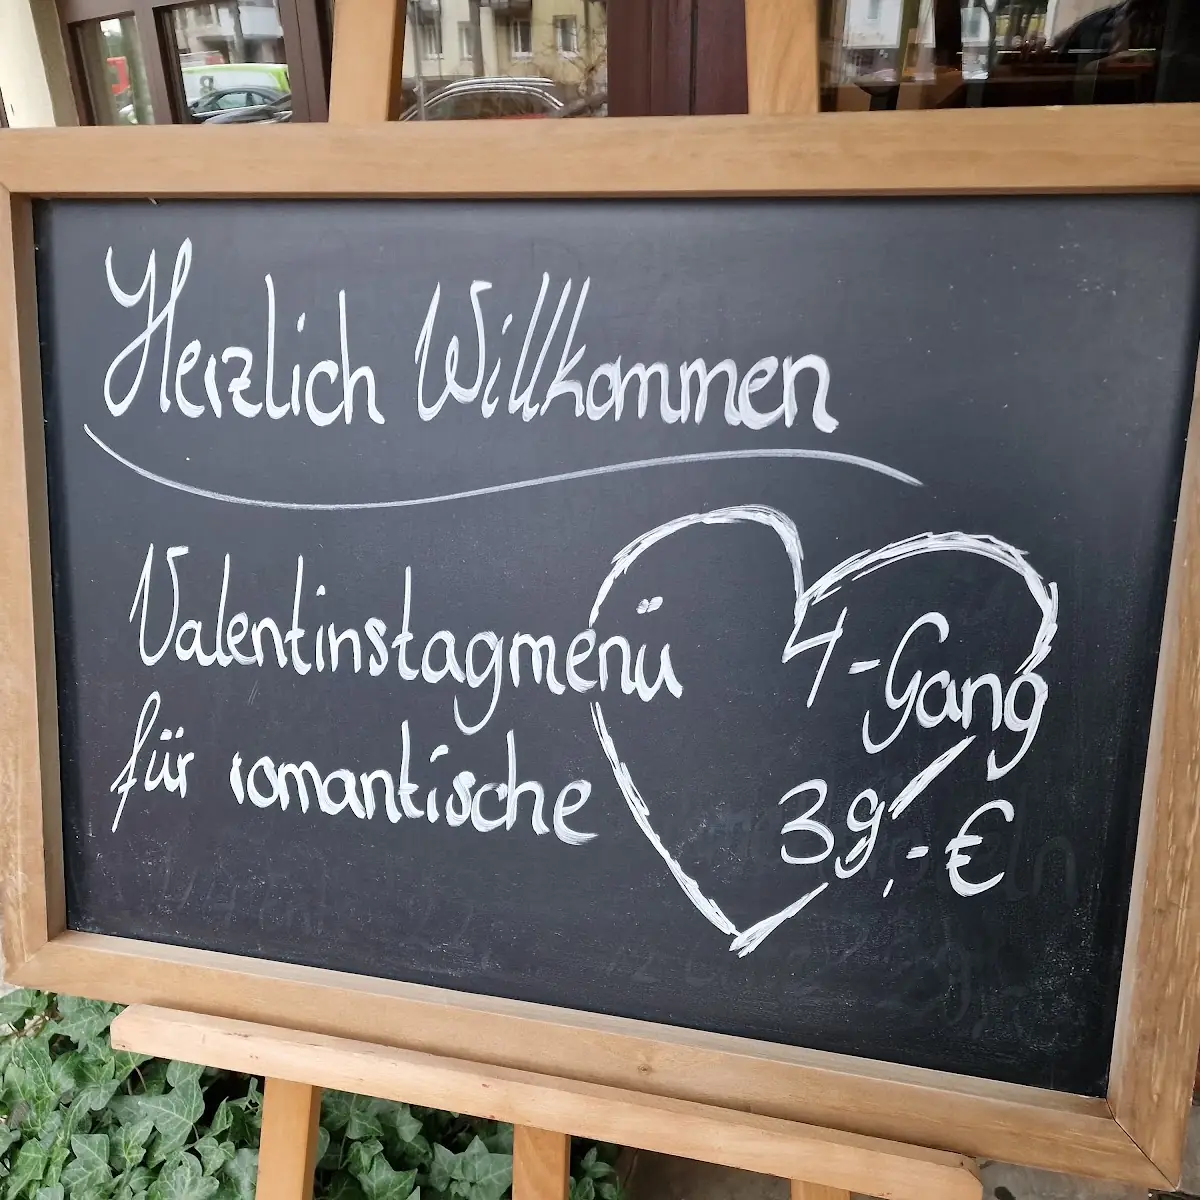 Herzlich Willkommen
Valentinstagmenü
für romantische
4-Gang
39,-€